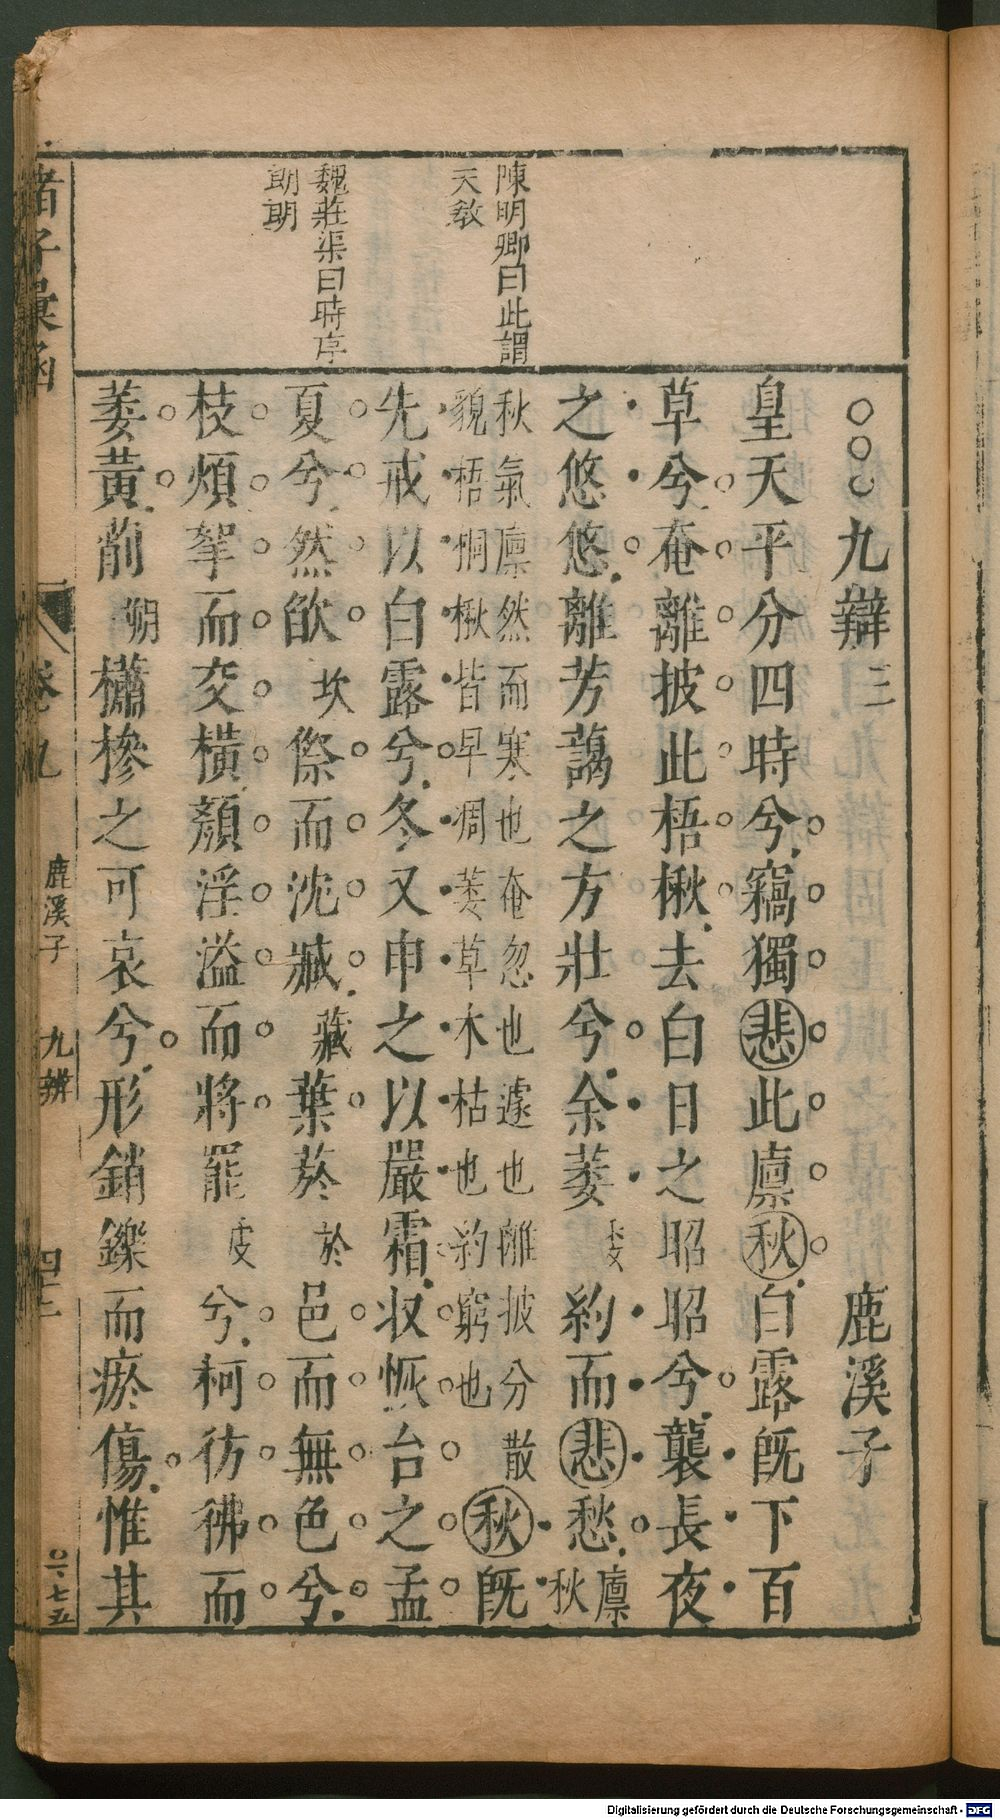 陳明卿曰此謂
天教
魏莊渠曰時序
○○○九辯三 鹿溪子
皇天平分四時兮竊獨悲此廩秋白露既下百
草兮奄離披此梧楸去白日之昭昭兮襲長夜
之悠悠離芳藹之方壯兮余萎 約而悲愁廩秋
秋氣廩然而寒也奄忽也遽也離披分散
貌梧桐楸皆早凋萎草木枯也約窮也秋既
先戒以白露兮冬又申之以嚴霜収恢台之孟
夏兮然欿坎傺而沈臧藏葉菸於邑而無色兮
枝煩挐而交橫顏淫溢而將罷皮兮柯彷彿而
萎黃萷朔櫹槮之可哀兮形銷鑠而瘀傷惟其
諸子彙函
卷九
鹿溪子
九辨
Digitalisierung gefördert durch die Deutsche Forschungsgemeinschaft - DFG